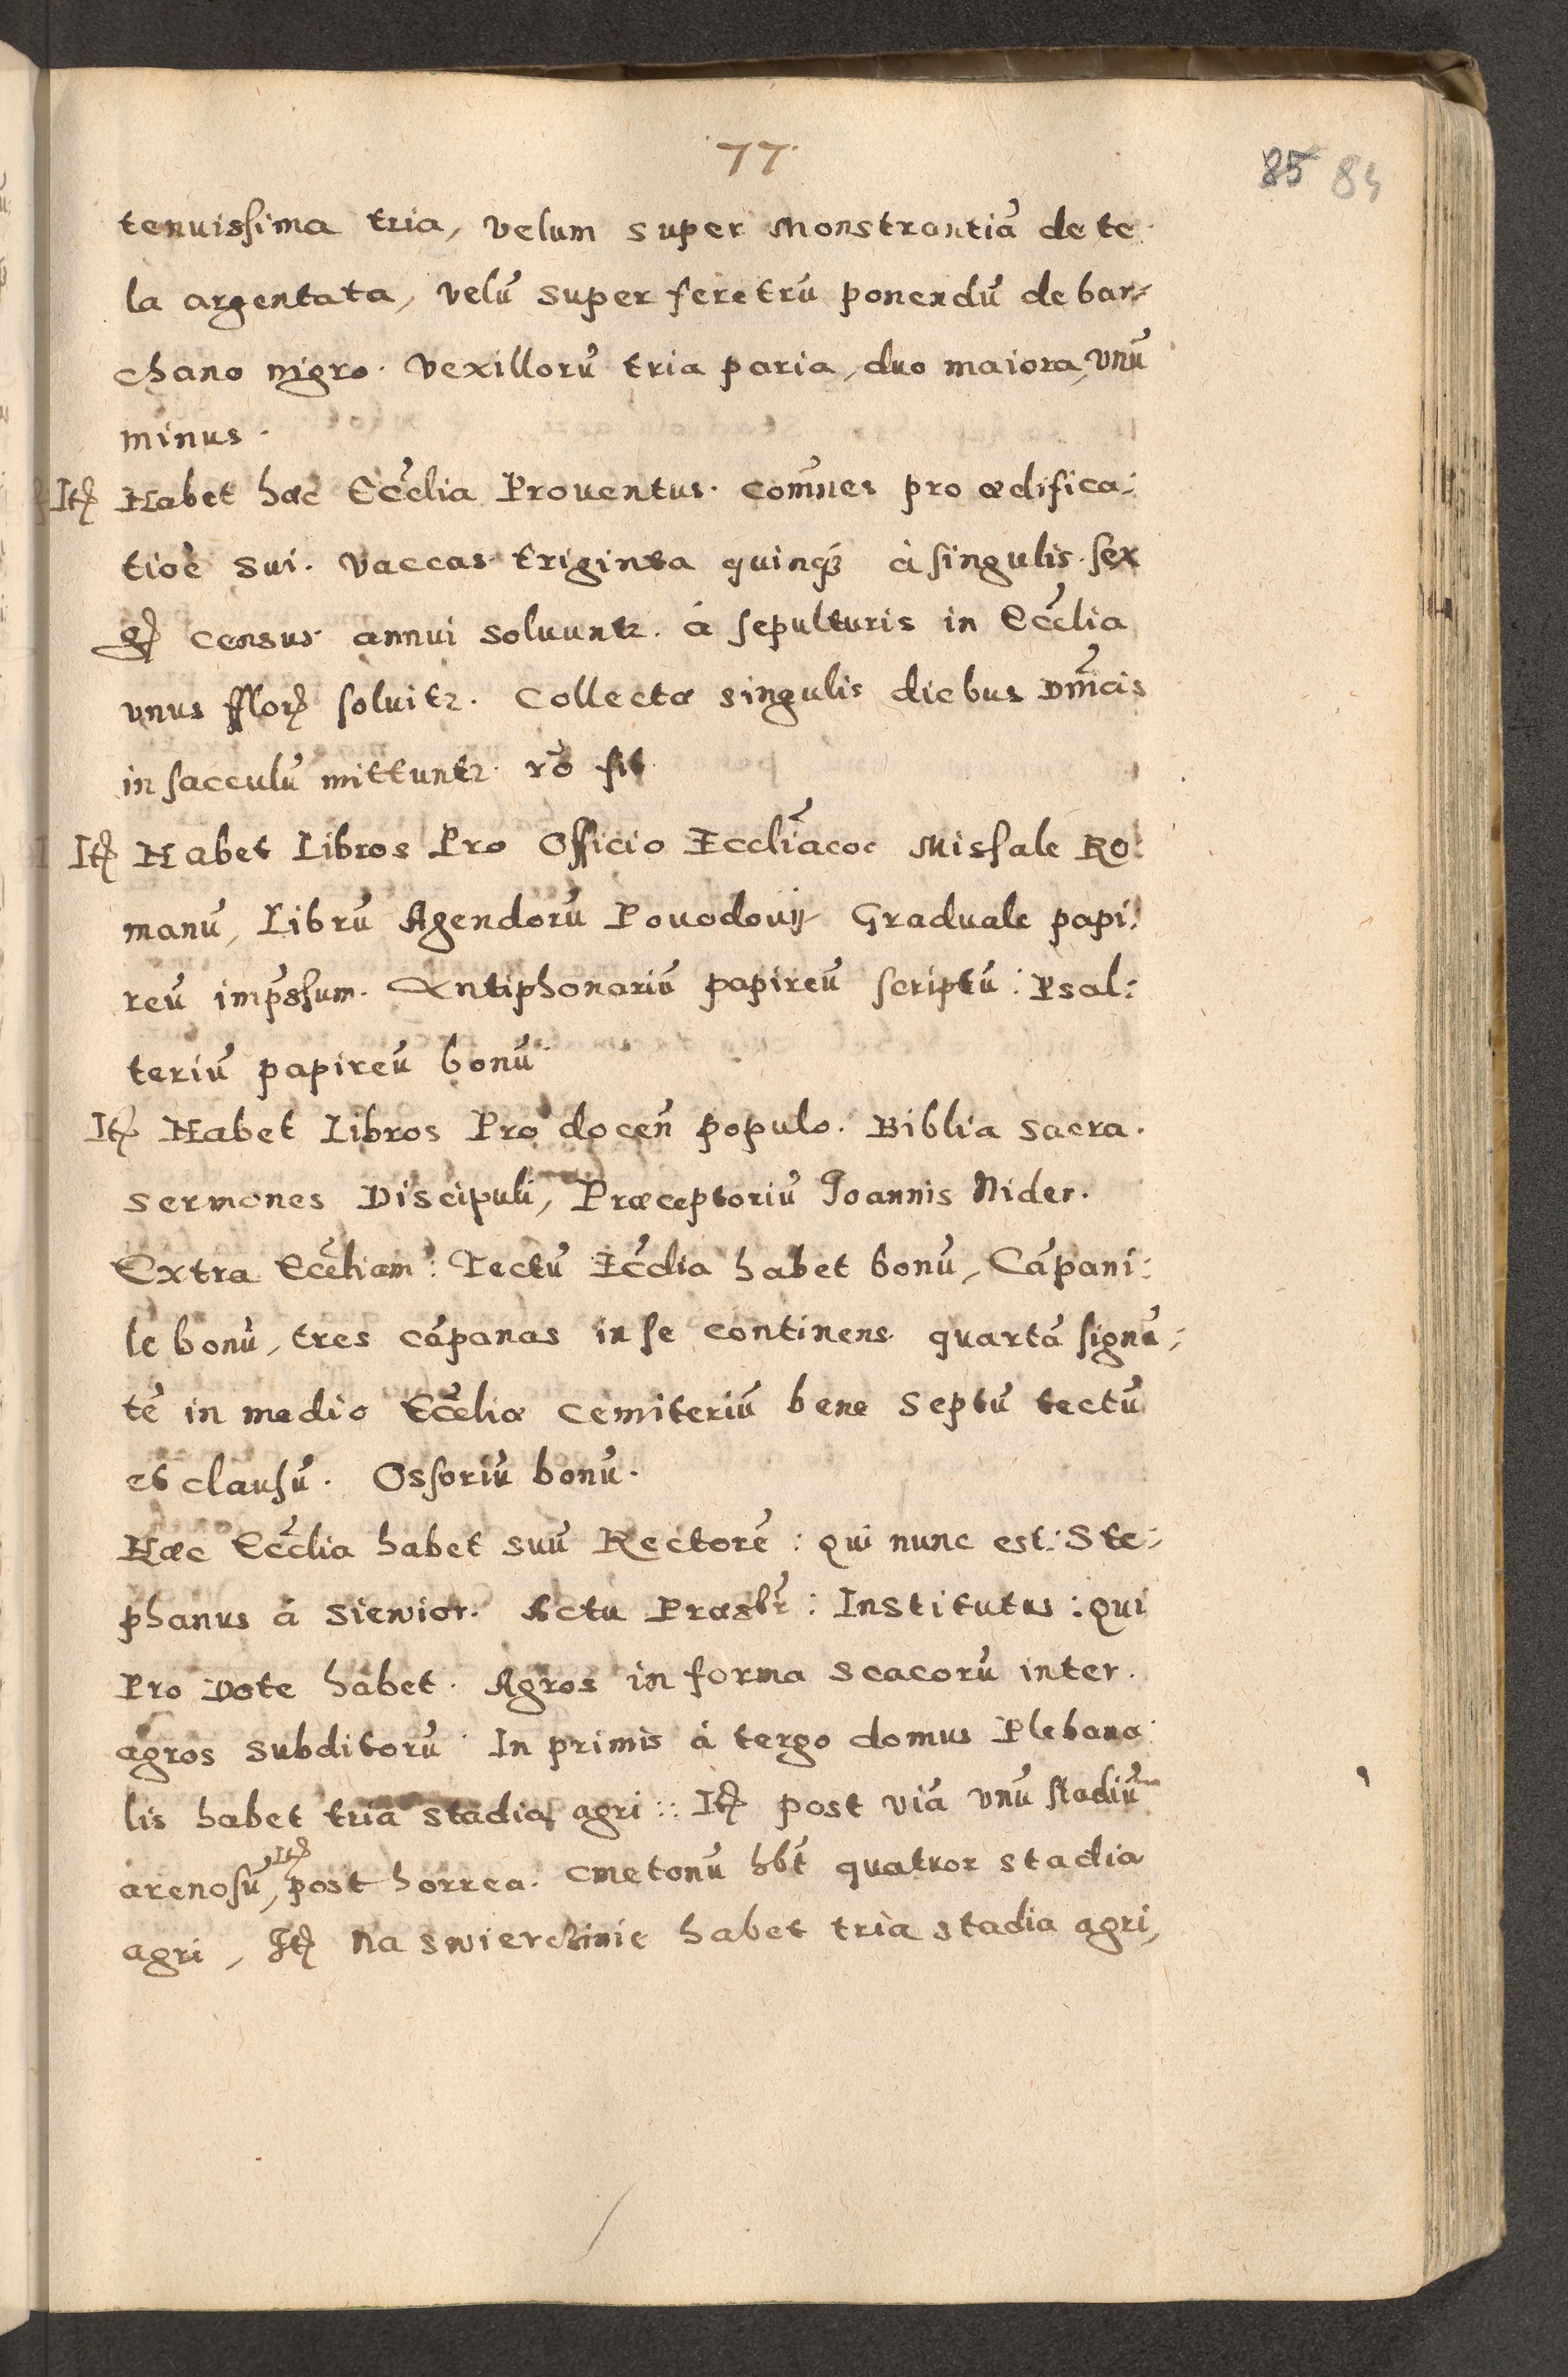 77.
85 84
tenuissima tria, velum super Monstrantiā de te
la argentata, velū super feretrū ponendū de bar-
chano nigro. Vexillorū tria paria, duo maiora, vnū
minus.
Itē Habet hæc Eccĺia Prouentus. com̄nes pro ædifica:
tioē sui. Vaccas triginta quinqȝ à singulis sex
gɼ census annui soluuntꝛ. à sepulturis in Eccĺia
vnus fflorɼ soluitꝛ. Collectæ singulis diebus Dm̄cis
in sacculū mittuntꝛ. rō fit
Itē Habet Libros Pro Officio Eccliācoc Missale Ro:
manū, Librū Agendorū Pouodouij Graduale papi:
reū imp̄ssum. Antiphonariū papireū scriptū: Psal:
teriū papireū bonū
Itē Habet Libros Pro docen̄ populo. Biblia sacra.
Sermones Discipuli, Præceptoriū Joannis Nider.
Extra Eccĺiam: Tectū Eccĺia habet bonū, Cāpani:
le bonū, tres cāpanas in se continens quartā signā,
tē in medio Eccĺiæ Cemiteriū bene septū tectū
et clausū. Ossoriū bonū.
Hæc Eccĺia habet suū Rectorē: qui nunc est: Ste:
phanus à Siewior. Actu Præsbr̄: Institutus: qui
Pro Dote habet. Agros in forma scacorū inter.
agros subditorū. In primis à tergo domus Plebana
lis habet tria stadia agri:: Itē post viā vnū stadiū
arenosū, Itē post horrea. Cmetonū hb̄t quatuor stadia
agri, Itē Na swierczinie habet tria stadia agri,